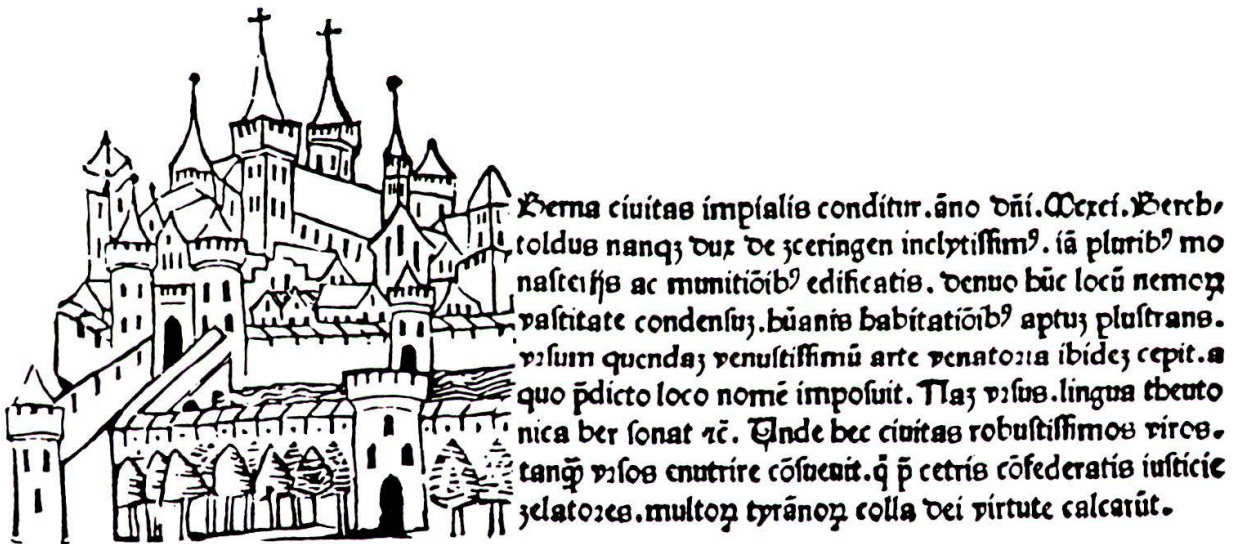 Berna ciuitas impialis conditur. āno dñi. Mcxci. Berch⸗
toldus nanqꝫ dux de zceringen inclytissimꝰ. iā pluribꝰ mo
nasterijs ac munitiōibꝰ edificatis. denuo hūc locū nemoꝝ
vastitate condensuꝫ. hūanis habitatiōibꝰ aptuꝫ plustrans.
vꝛsum quendaꝫ venustissimū arte venatoꝛia ibideꝫ cepit. a
quo p̄dicto loco nomē imposuit. Naꝫ vꝛsus. lingua theuto
nica ber sonat ⁊c̄. Unde hec ciuitas robustissimos viros.
tanꝙ̄ vꝛsos enutrire cōsueuit. q̄ p̄ cetris cōfederatis iusticie
zelatoꝛes. multoꝝ tyrānoꝝ colla dei virtute calcarūt.